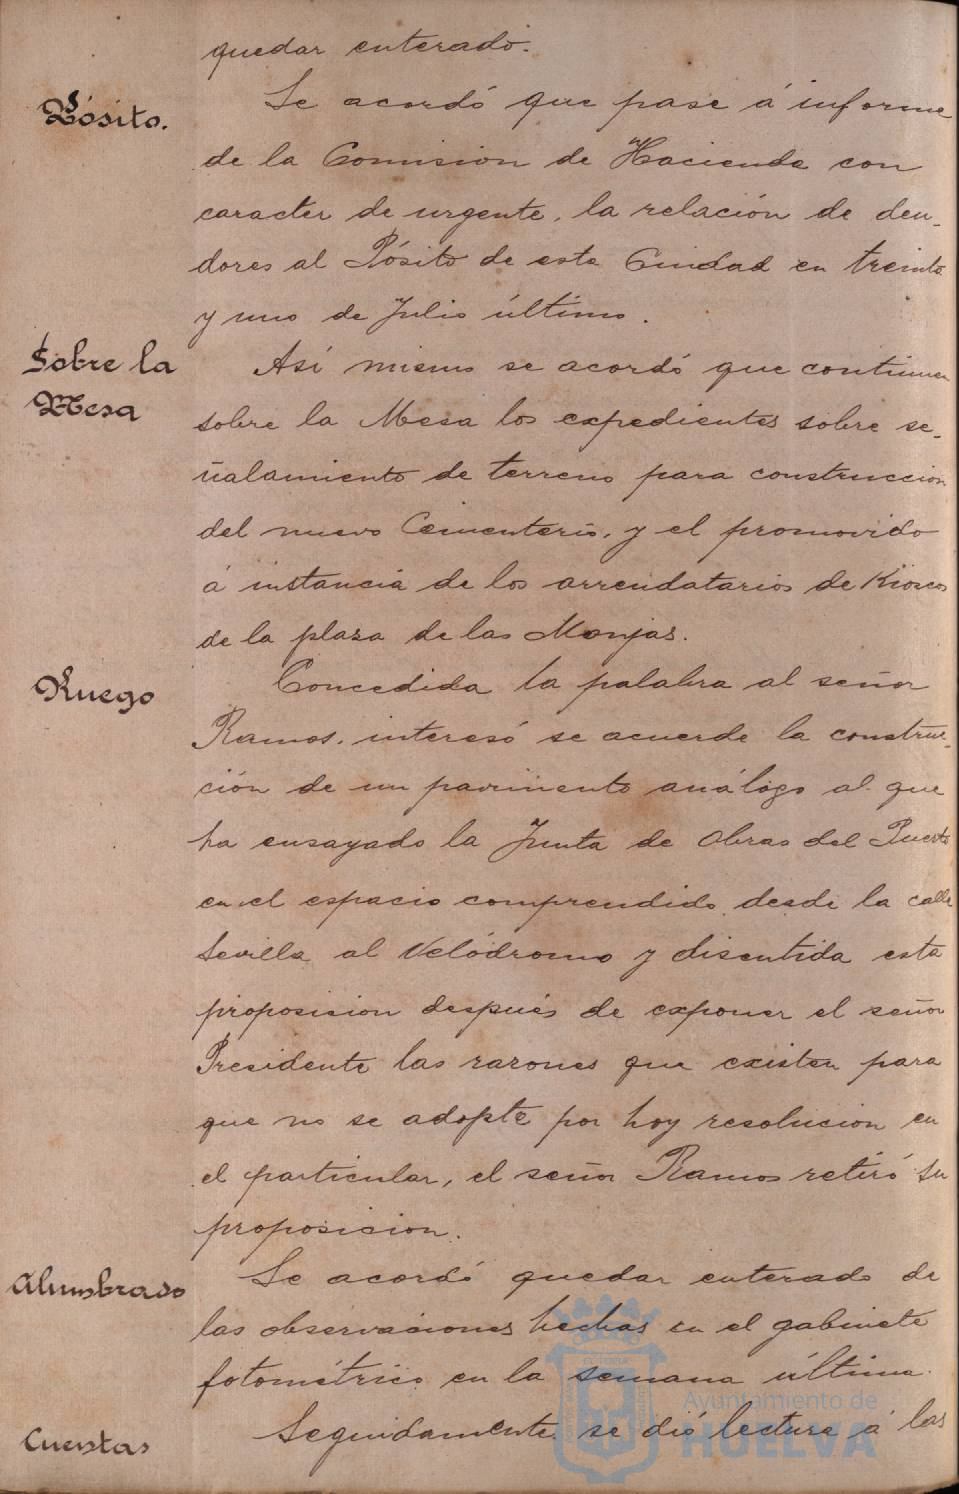 quedar enterado.
Pósito.
Se acordó que pase á informe
de la Comision de Hacienda con
caracter de urgente, la relación de deu-
dores al Pósito de esta Ciudad en treinta
y uno de Julio último.
Sobre la
Mesa
Así mismo se acordó que continuen
sobre la Mesa los expedientes sobre se-
ñalamiento de terreno para construccion
del nuevo Cementerio, y el promovido
á instancia de los arrendatarios de Kioscos
de la plaza de las Monjas.
Ruego
Concedida la palabra al señor
Ramos, interesó se acuerde la construc-
ción de un pavimento análogo al que
ha ensayado la Junta de Obras del Puerto
en el espacio comprendido desde la calle
Sevilla al Velódromo y discutida esta
proposicion después de exponer el señor
Presidente las razones que existen para
que no se adopte por hoy resolucion en
el particular, el señor Ramos retiró su
proposicion.
Alumbrado
Se acordó quedar enterado de
las observaciones hechas en el gabinete
fotométrico en la semana última.
Cuentas
Seguidamente se dió lectura á las
Ayuntamiento de
HUELVA